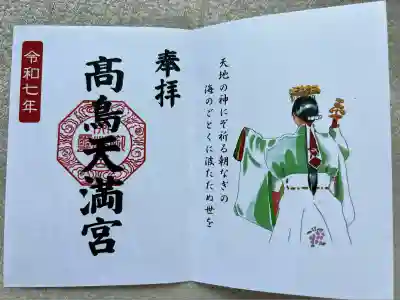 奉拝
髙鳥天満宮
令和七年
天地の神にぞ祈る朝なぎの
海のごとくに波たたぬ世を